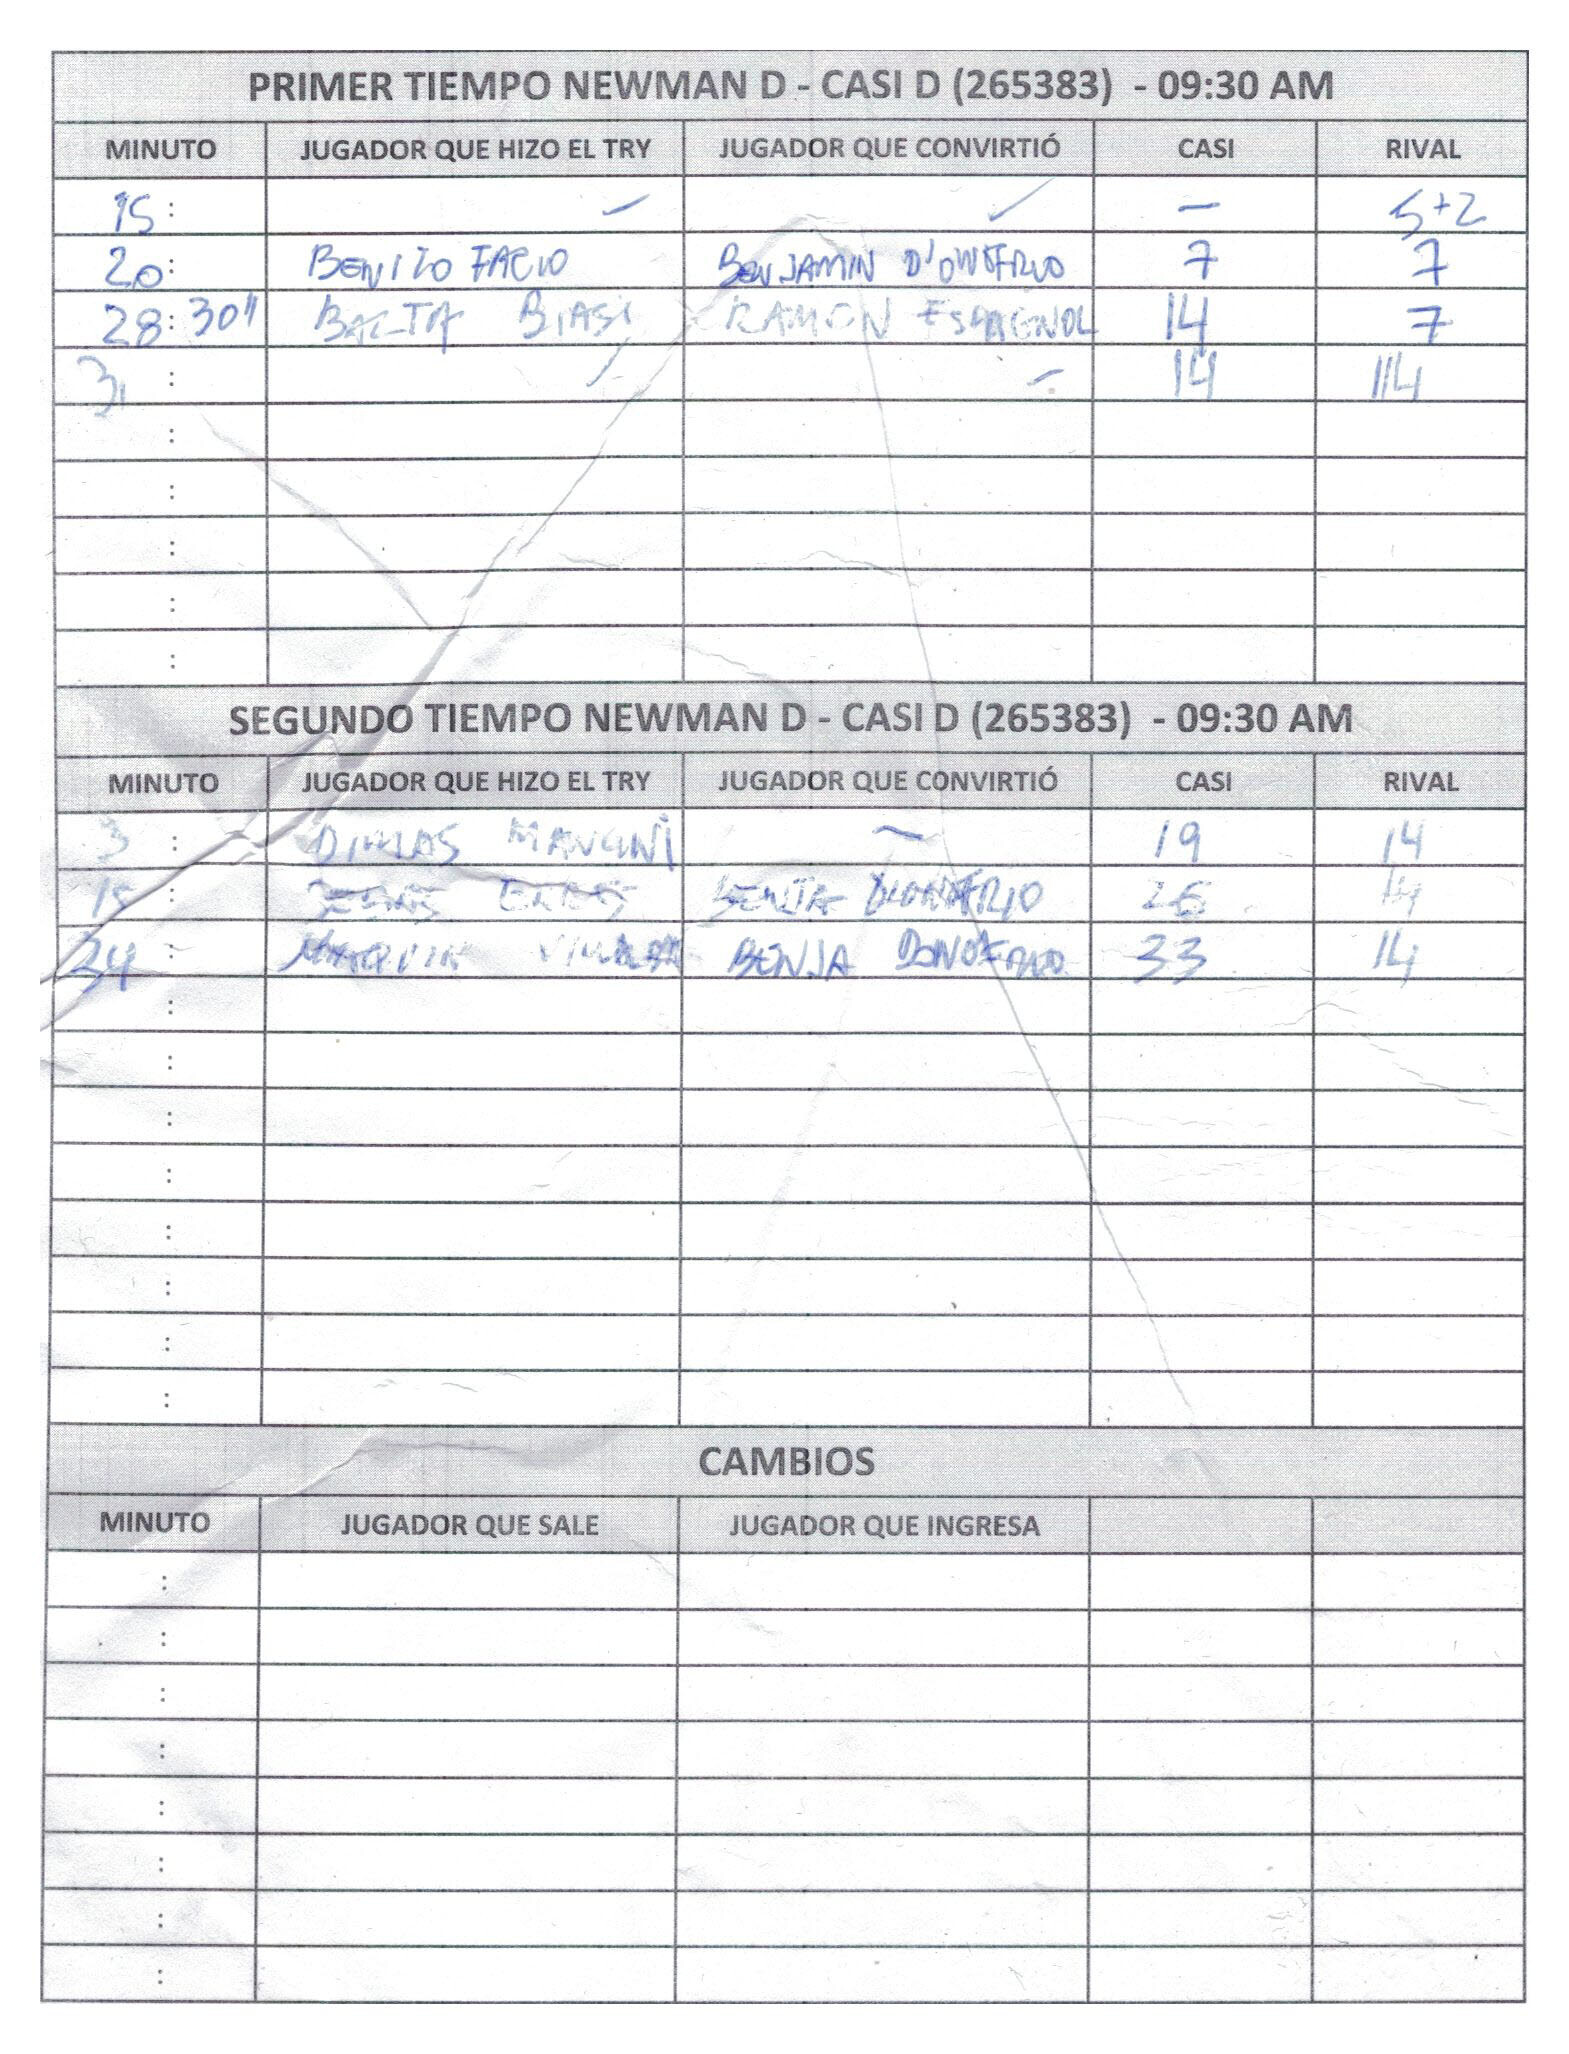 PRIMER TIEMPO NEWMAN D - CASI D (265383) - 09:30 AM
MINUTO JUGADOR QUE HIZO EL TRY JUGADOR QUE CONVIRTIÓ CASI RIVAL
15: – ✓ – 5+2
20: BENITO FACIO BENJAMIN D'ONOFRIO 7 7
28:30" BALTA BIASI RAMON ESPAGNOL 14 7
31 : – – 14 14
:
:
:
:
:
SEGUNDO TIEMPO NEWMAN D - CASI D (265383) - 09:30 AM
MINUTO JUGADOR QUE HIZO EL TRY JUGADOR QUE CONVIRTIÓ CASI RIVAL
3 : DIMAS MANCINI – 19 14
15 : D'ONOFRIO 26 14
34 : BENJA DONOFRIO 33 14
:
:
:
:
:
:
:
:
CAMBIOS
MINUTO JUGADOR QUE SALE JUGADOR QUE INGRESA
:
:
:
:
:
:
:
: